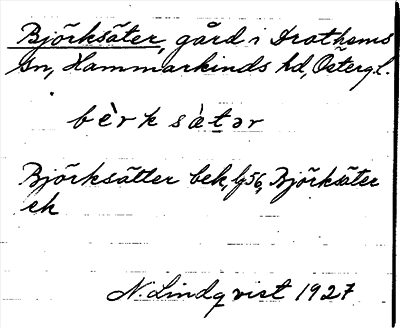 Björksäter, gård i Drothems
sn, Hammarkinds hd, Östergl.
bèrk sàtər
Björksätter bek, Björksäter
ek
N. Lindqvist 1927